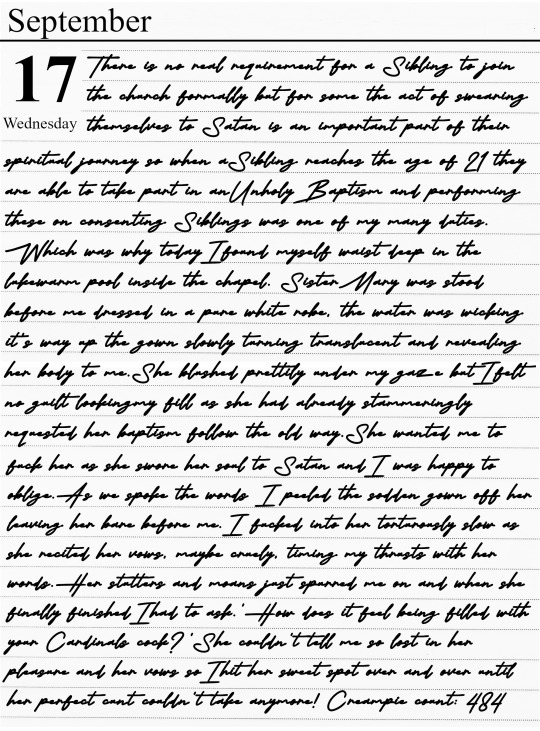 September
17 There is no real requirement for a Sibling to join
the church formally but for some the act of swearing
Wednesday themselves to Satan is an important part of their
spiritual journey so when a Sibling reaches the age of 21 they
are able to take part in an Unholy Baptism and performing
these on consenting Siblings was one of my many duties.
Which was why today I found myself waist deep in the
lukewarm pool inside the chapel. Sister Mary was stood
before me dressed in a pure white robe, the water was wicking
it's way up the gown slowly turning translucent and revealing
her body to me. She blushed prettily under my gaze but I felt
no guilt looking my fill as she had already stammeringly
requested her baptism follow the old way. She wanted me to
fuck her as she swore her soul to Satan and I was happy to
oblige. As we spoke the words I peeled the sodden gown off her
leaving her bare before me. I fucked into her torturously slow as
she recited her vows, maybe cruely, timing my thrusts with her
words. Her stutters and moans just spurred me on and when she
finally finished I had to ask. 'How does it feel being filled with
your Cardinals cock?' She couldn't tell me so lost in her
pleasure and her vows so I hit her sweet spot over and over until
her perfect cunt couldn't take anymore! Creampie count: 484